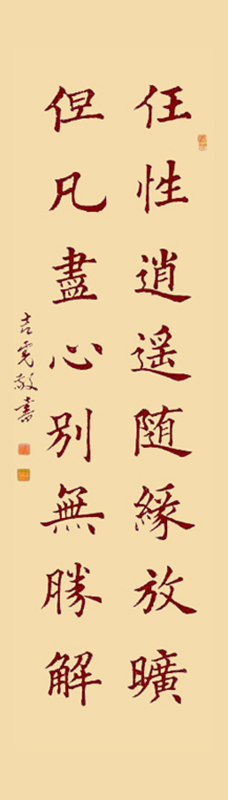 任性逍遥随緣放曠
但凡盡心別無勝解
敬書